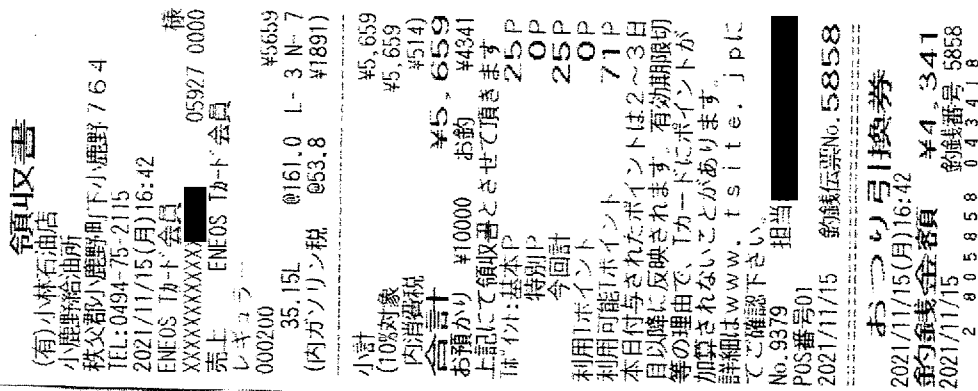 領収書
(有)小林石油店
小鹿野給油所
秩父郡小鹿野町下小鹿野764
TEL:0494-75-2115
2021/11/15(月)16:42
ENEOS Tカード会員 様
XXXXXXXXXXXX 05927 0000
売上 ENEOS Tカード会員
レギュラー ¥5659
000200 @161.0 L- 3 N- 7
35.15L @53.8 ¥1891)
(内ガソリン税
小計 ¥5,659
(10%対象 ¥5,659
内消費税 ¥514)
合計 ¥5,659
お預かり ¥10000 お釣 ¥4341
上記にて領収書とさせて頂きます
Tポイント:基本P 25P
特別P 0P
今回計 25P
利用Tポイント 0P
利用可能Tポイント 71P
本日付与されたポイントは2~3日
目以降に反映されます。有効期限切
等の理由で、Tカードにポイントが
加算されないことがあります。
詳細はwww.tsite.jpに
てご確認下さい。
No.9379 担当
POS番号01
2021/11/15 釣銭伝票No.5858
おつり引換券
2021/11/15(月)16:42
釣銭金額 ¥4,341
2021/11/15 釣銭番号 5858
2805858 043418